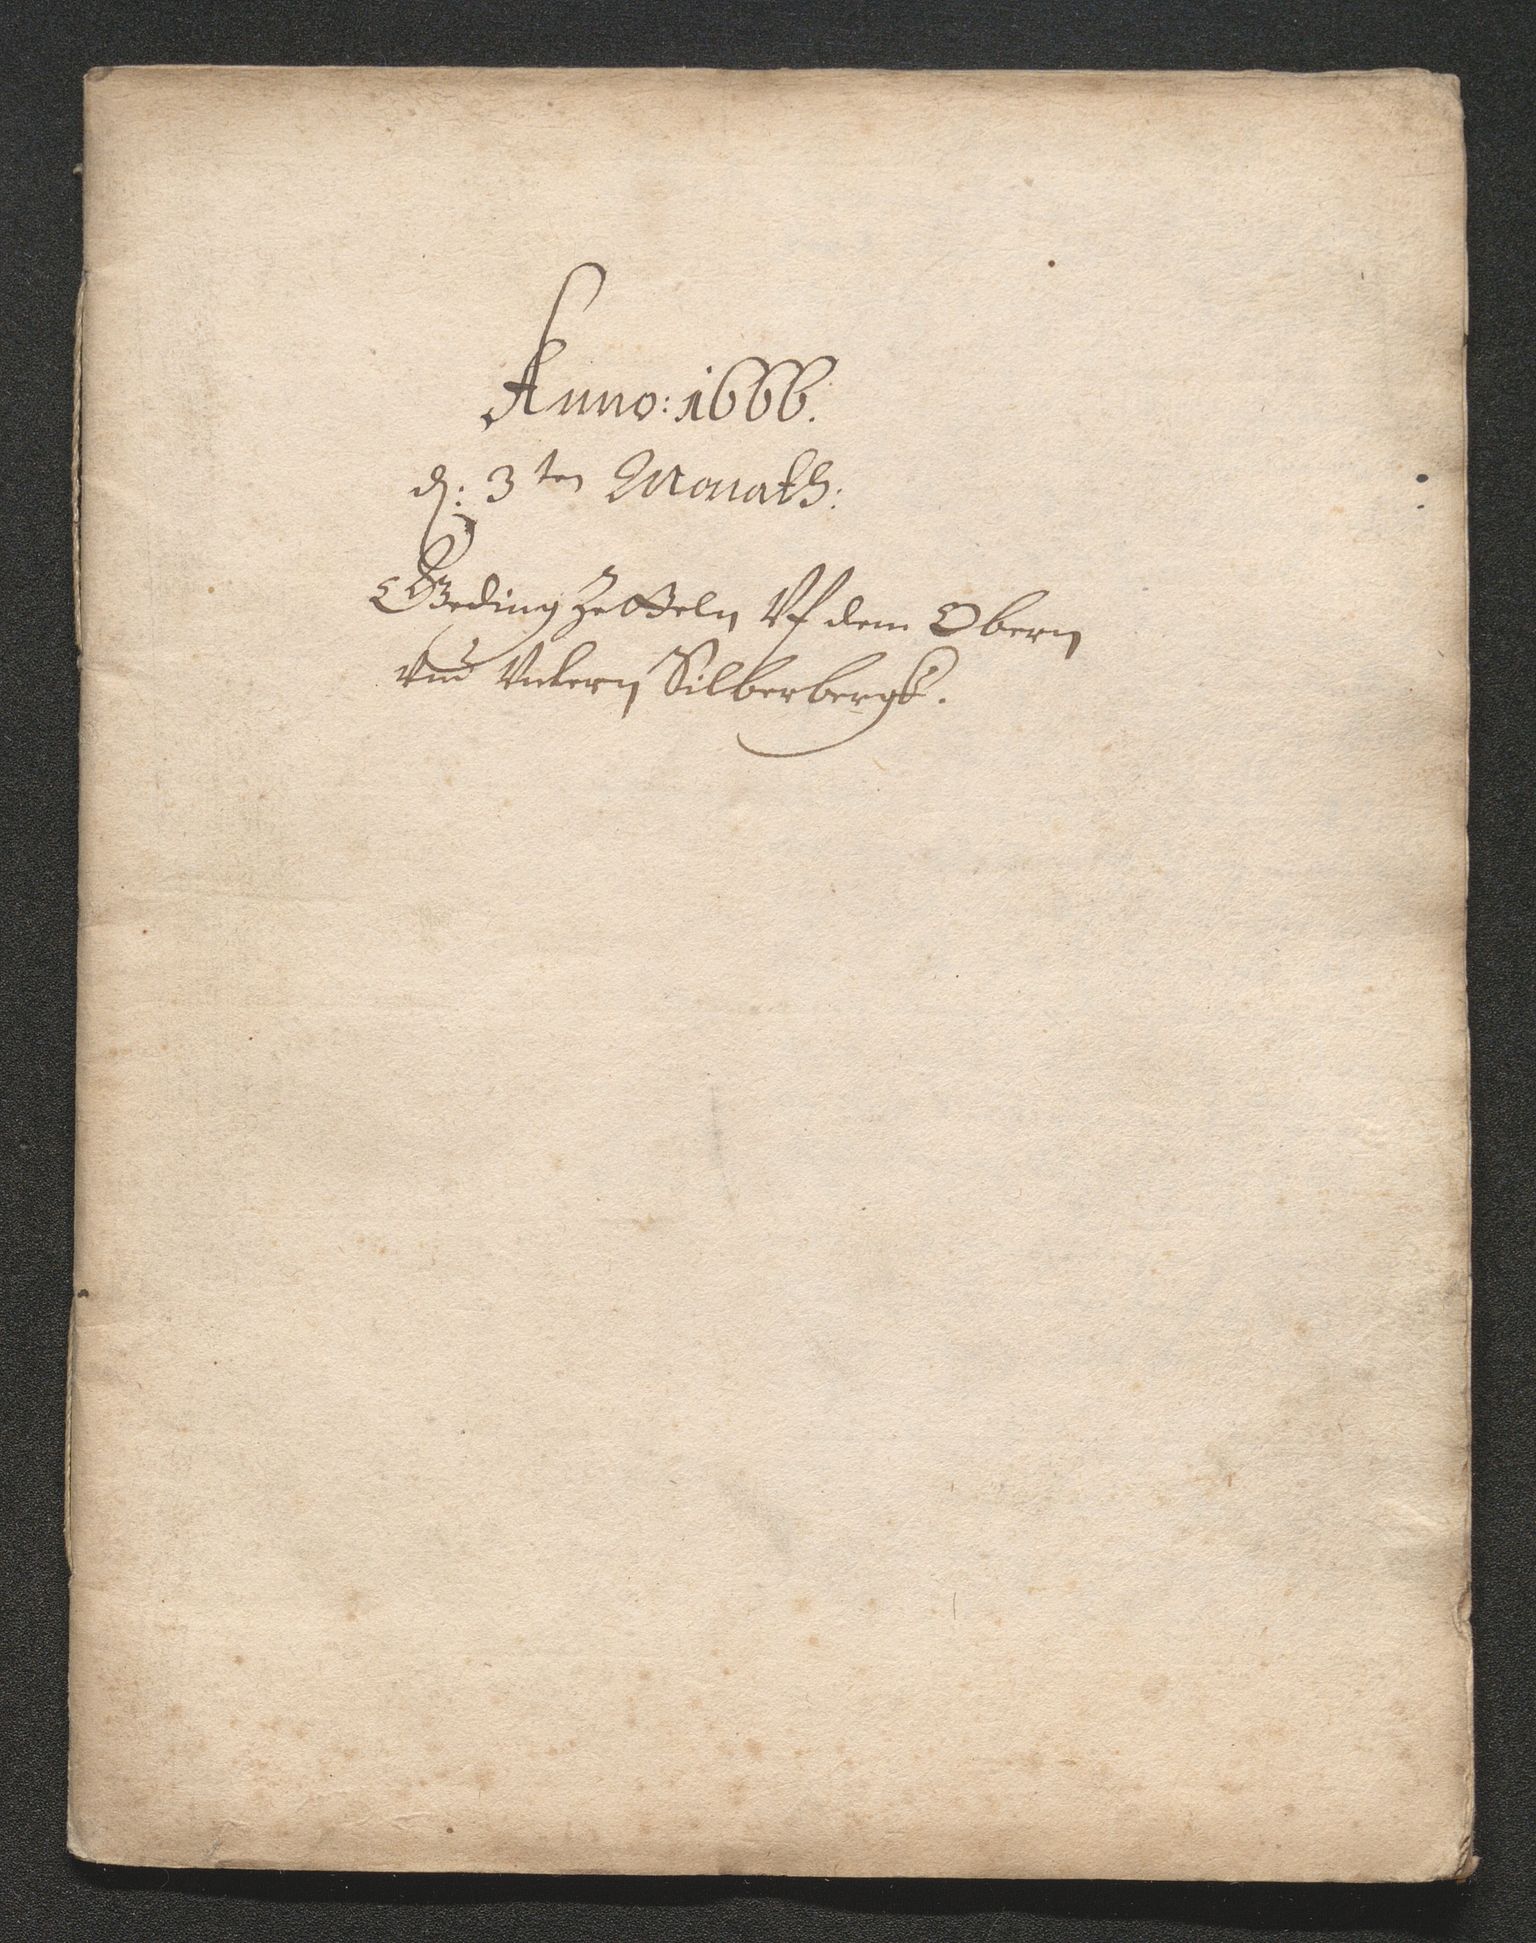 Anno: 1666.
d: 3ten Monath:
Geding Zetteln Vf dem Obern
Vnd Vntern Silberbergk.